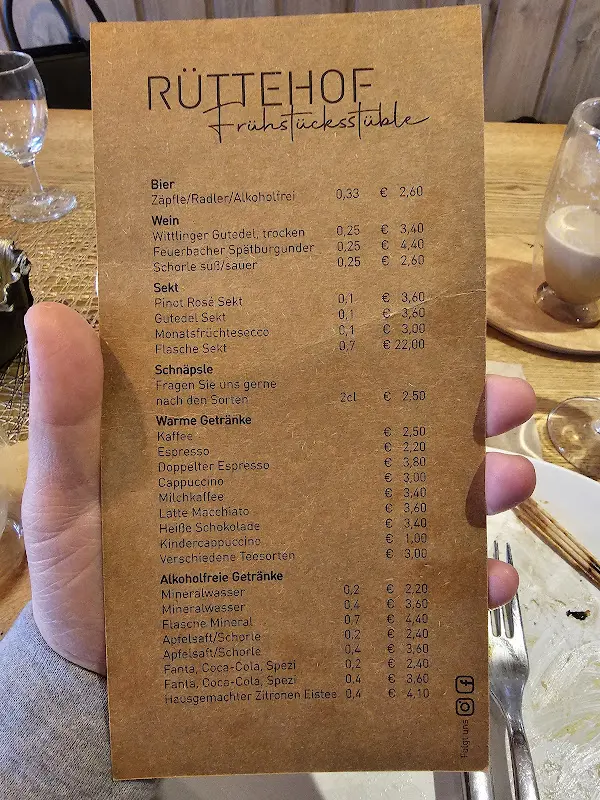 RÜTTEHOF
Frühstücksstüble
Bier
Zäpfle/Radler/Alkoholfrei 0,33 € 2,60
Wein
Wittlinger Gutedel, trocken 0,25 € 3,40
Feuerbacher Spätburgunder 0,25 € 4,40
Schorle süß/sauer 0,25 € 2,60
Sekt
Pinot Rosé Sekt 0,1 € 3,60
Gutedel Sekt 0,1 € 3,60
Monatsfrüchtesecco 0,1 € 3,00
Flasche Sekt 0,7 € 22,00
Schnäpsle
Fragen Sie uns gerne
nach den Sorten 2cl € 2,50
Warme Getränke
Kaffee € 2,50
Espresso € 2,20
Doppelter Espresso € 3,80
Cappuccino € 3,00
Milchkaffee € 3,40
Latte Macchiato € 3,60
Heiße Schokolade € 3,40
Kindercappuccino € 1,00
Verschiedene Teesorten € 3,00
Alkoholfreie Getränke
Mineralwasser 0,2 € 2,20
Mineralwasser 0,4 € 3,60
Flasche Mineral 0,7 € 4,40
Apfelsaft/Schorle 0,2 € 2,40
Apfelsaft/Schorle 0,4 € 3,60
Fanta, Coca-Cola, Spezi 0,2 € 2,40
Fanta, Coca-Cola, Spezi 0,4 € 3,60
Hausgemachter Zitronen Eistee 0,4 € 4,10
Folgt uns